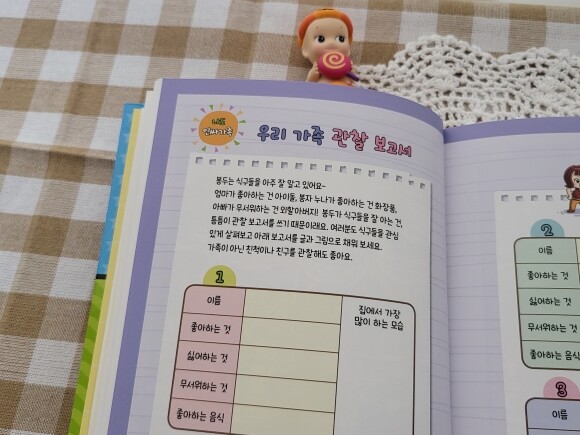 나도
진짜가족
우리 가족 관찰 보고서
봉두는 식구들을 아주 잘 알고 있어요~
엄마가 좋아하는 건 아이돌, 봉자 누나가 좋아하는 건 화장품,
아빠가 무서워하는 건 외할아버지! 봉두가 식구들을 잘 아는 건,
틈틈이 관찰 보고서를 쓰기 때문이래요. 여러분도 식구들을 관심
있게 살펴보고 아래 보고서를 글과 그림으로 채워 보세요.
가족이 아닌 친척이나 친구를 관찰해도 좋아요.
1
이름
좋아하는 것
싫어하는 것
무서워하는 것
좋아하는 음식
집에서 가장
많이 하는 모습
2
이름
좋아하는 것
싫어하는 것
무서워하는 것
좋아하는 음식
3
이름